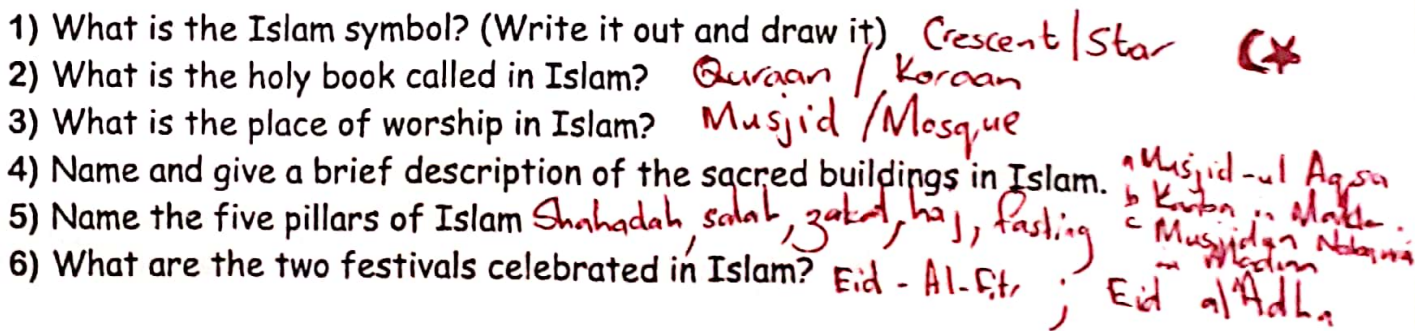 1) What is the Islam symbol? (Write it out and draw it) Crescent/Star
2) What is the holy book called in Islam? Quraan / Koraan
3) What is the place of worship in Islam? Musjid / Mosque
4) Name and give a brief description of the sacred buildings in Islam. a Musjid-ul Aqsa
b Kaaba in
5) Name the five pillars of Islam Shahadah, salah, zakat, haj, fasting
c Musjidun
in Medina
6) What are the two festivals celebrated in Islam? Eid - Al-Fitr ; Eid al Adha